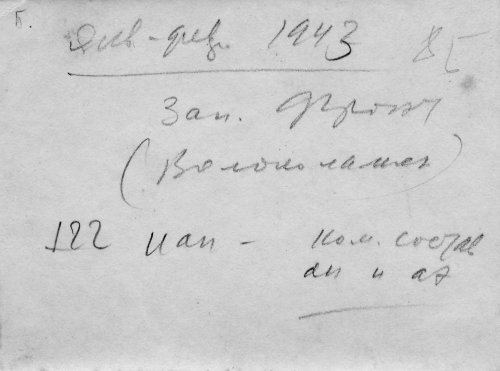 Б.
Янв-февр 1943 85
Зап. Фронт
(Волоколамск)
122 нап - ком. состав
ап и аэ